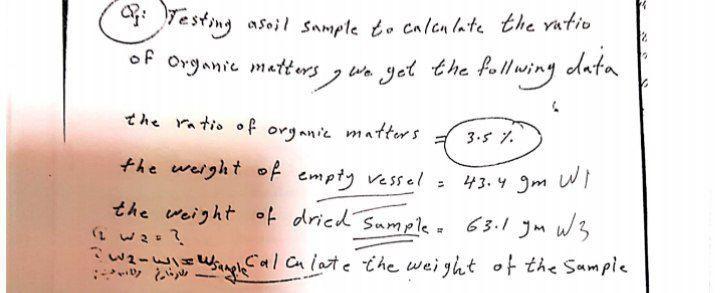 Q: Testing asoil sample to calculate the ratio
of organic matters, we get the follwing data
the ratio of organic matters = 3.5 %
the weight of empty vessel = 43.4 gm W1
the weight of dried sample = 63.1 gm W3
W2 = ?
W2-W1=Wsample Calculate the weight of the sample